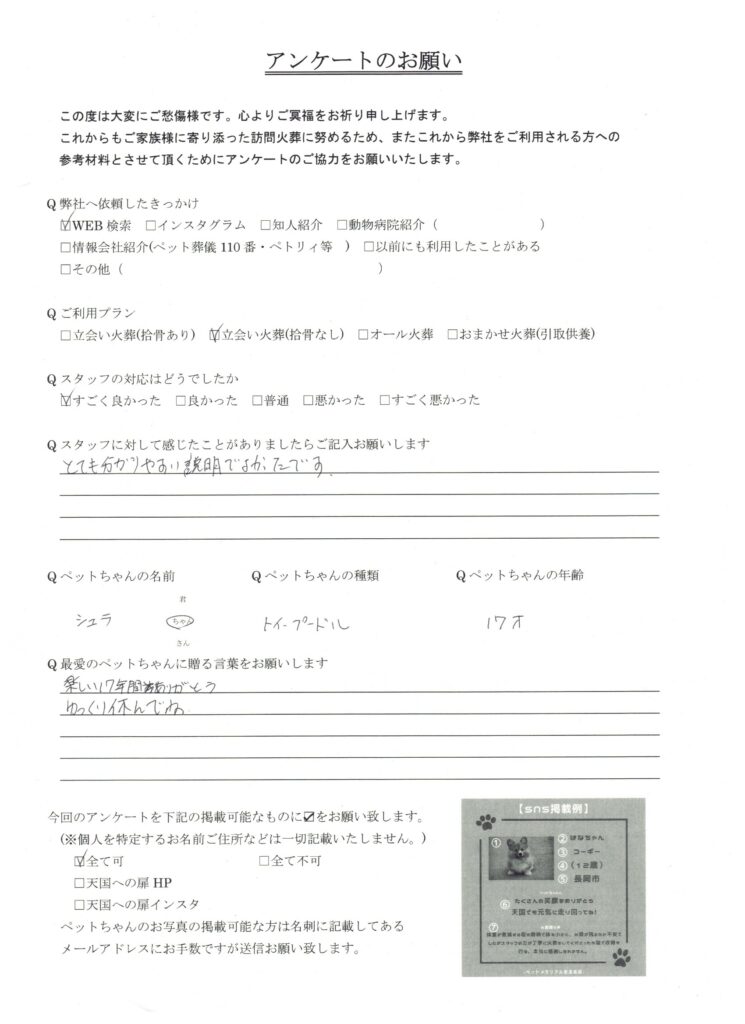 アンケートのお願い
この度は大変にご愁傷様です。心よりご冥福をお祈り申し上げます。
これからもご家族様に寄り添った訪問火葬に努めるため、またこれから弊社をご利用される方への
参考材料とさせて頂くためにアンケートのご協力をお願いいたします。
Q 弊社へ依頼したきっかけ
☑WEB 検索 □インスタグラム □知人紹介 □動物病院紹介（ ）
□情報会社紹介(ペット葬儀 110 番・ペトリィ等 ) □以前にも利用したことがある
□その他（ ）
Q ご利用プラン
□立会い火葬(拾骨あり) ☑立会い火葬(拾骨なし) □オール火葬 □おまかせ火葬(引取供養)
Q スタッフの対応はどうでしたか
☑すごく良かった □良かった □普通 □悪かった □すごく悪かった
Q スタッフに対して感じたことがありましたらご記入お願いします
とても分かりやすい説明でよかったです
Q ペットちゃんの名前 Q ペットちゃんの種類 Q ペットちゃんの年齢
君
シュラ ちゃん トイープードル 17才
さん
Q 最愛のペットちゃんに贈る言葉をお願いします
楽しい17年間ありがとう
ゆっくり休んでね
今回のアンケートを下記の掲載可能なものに☑をお願い致します。
(※個人を特定するお名前ご住所などは一切記載いたしません。)
☑全て可 □全て不可
□天国への扉 HP
□天国への扉インスタ
ペットちゃんのお写真の掲載可能な方は名刺に記載してある
メールアドレスにお手数ですが送信お願い致します。
【sns掲載例】
①
② はなちゃん
③ コーギー
④ （12歳）
⑤ 長岡市
⑥ たくさんの笑顔をありがとう
天国でも元気に走り回ってね！
⑦